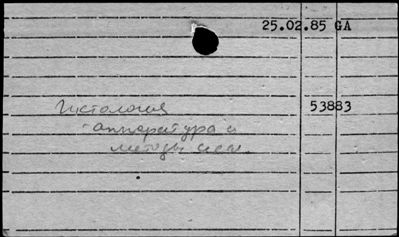 25.02.85 GA
Гистология 53883
- аппаратура и
методы иссл.